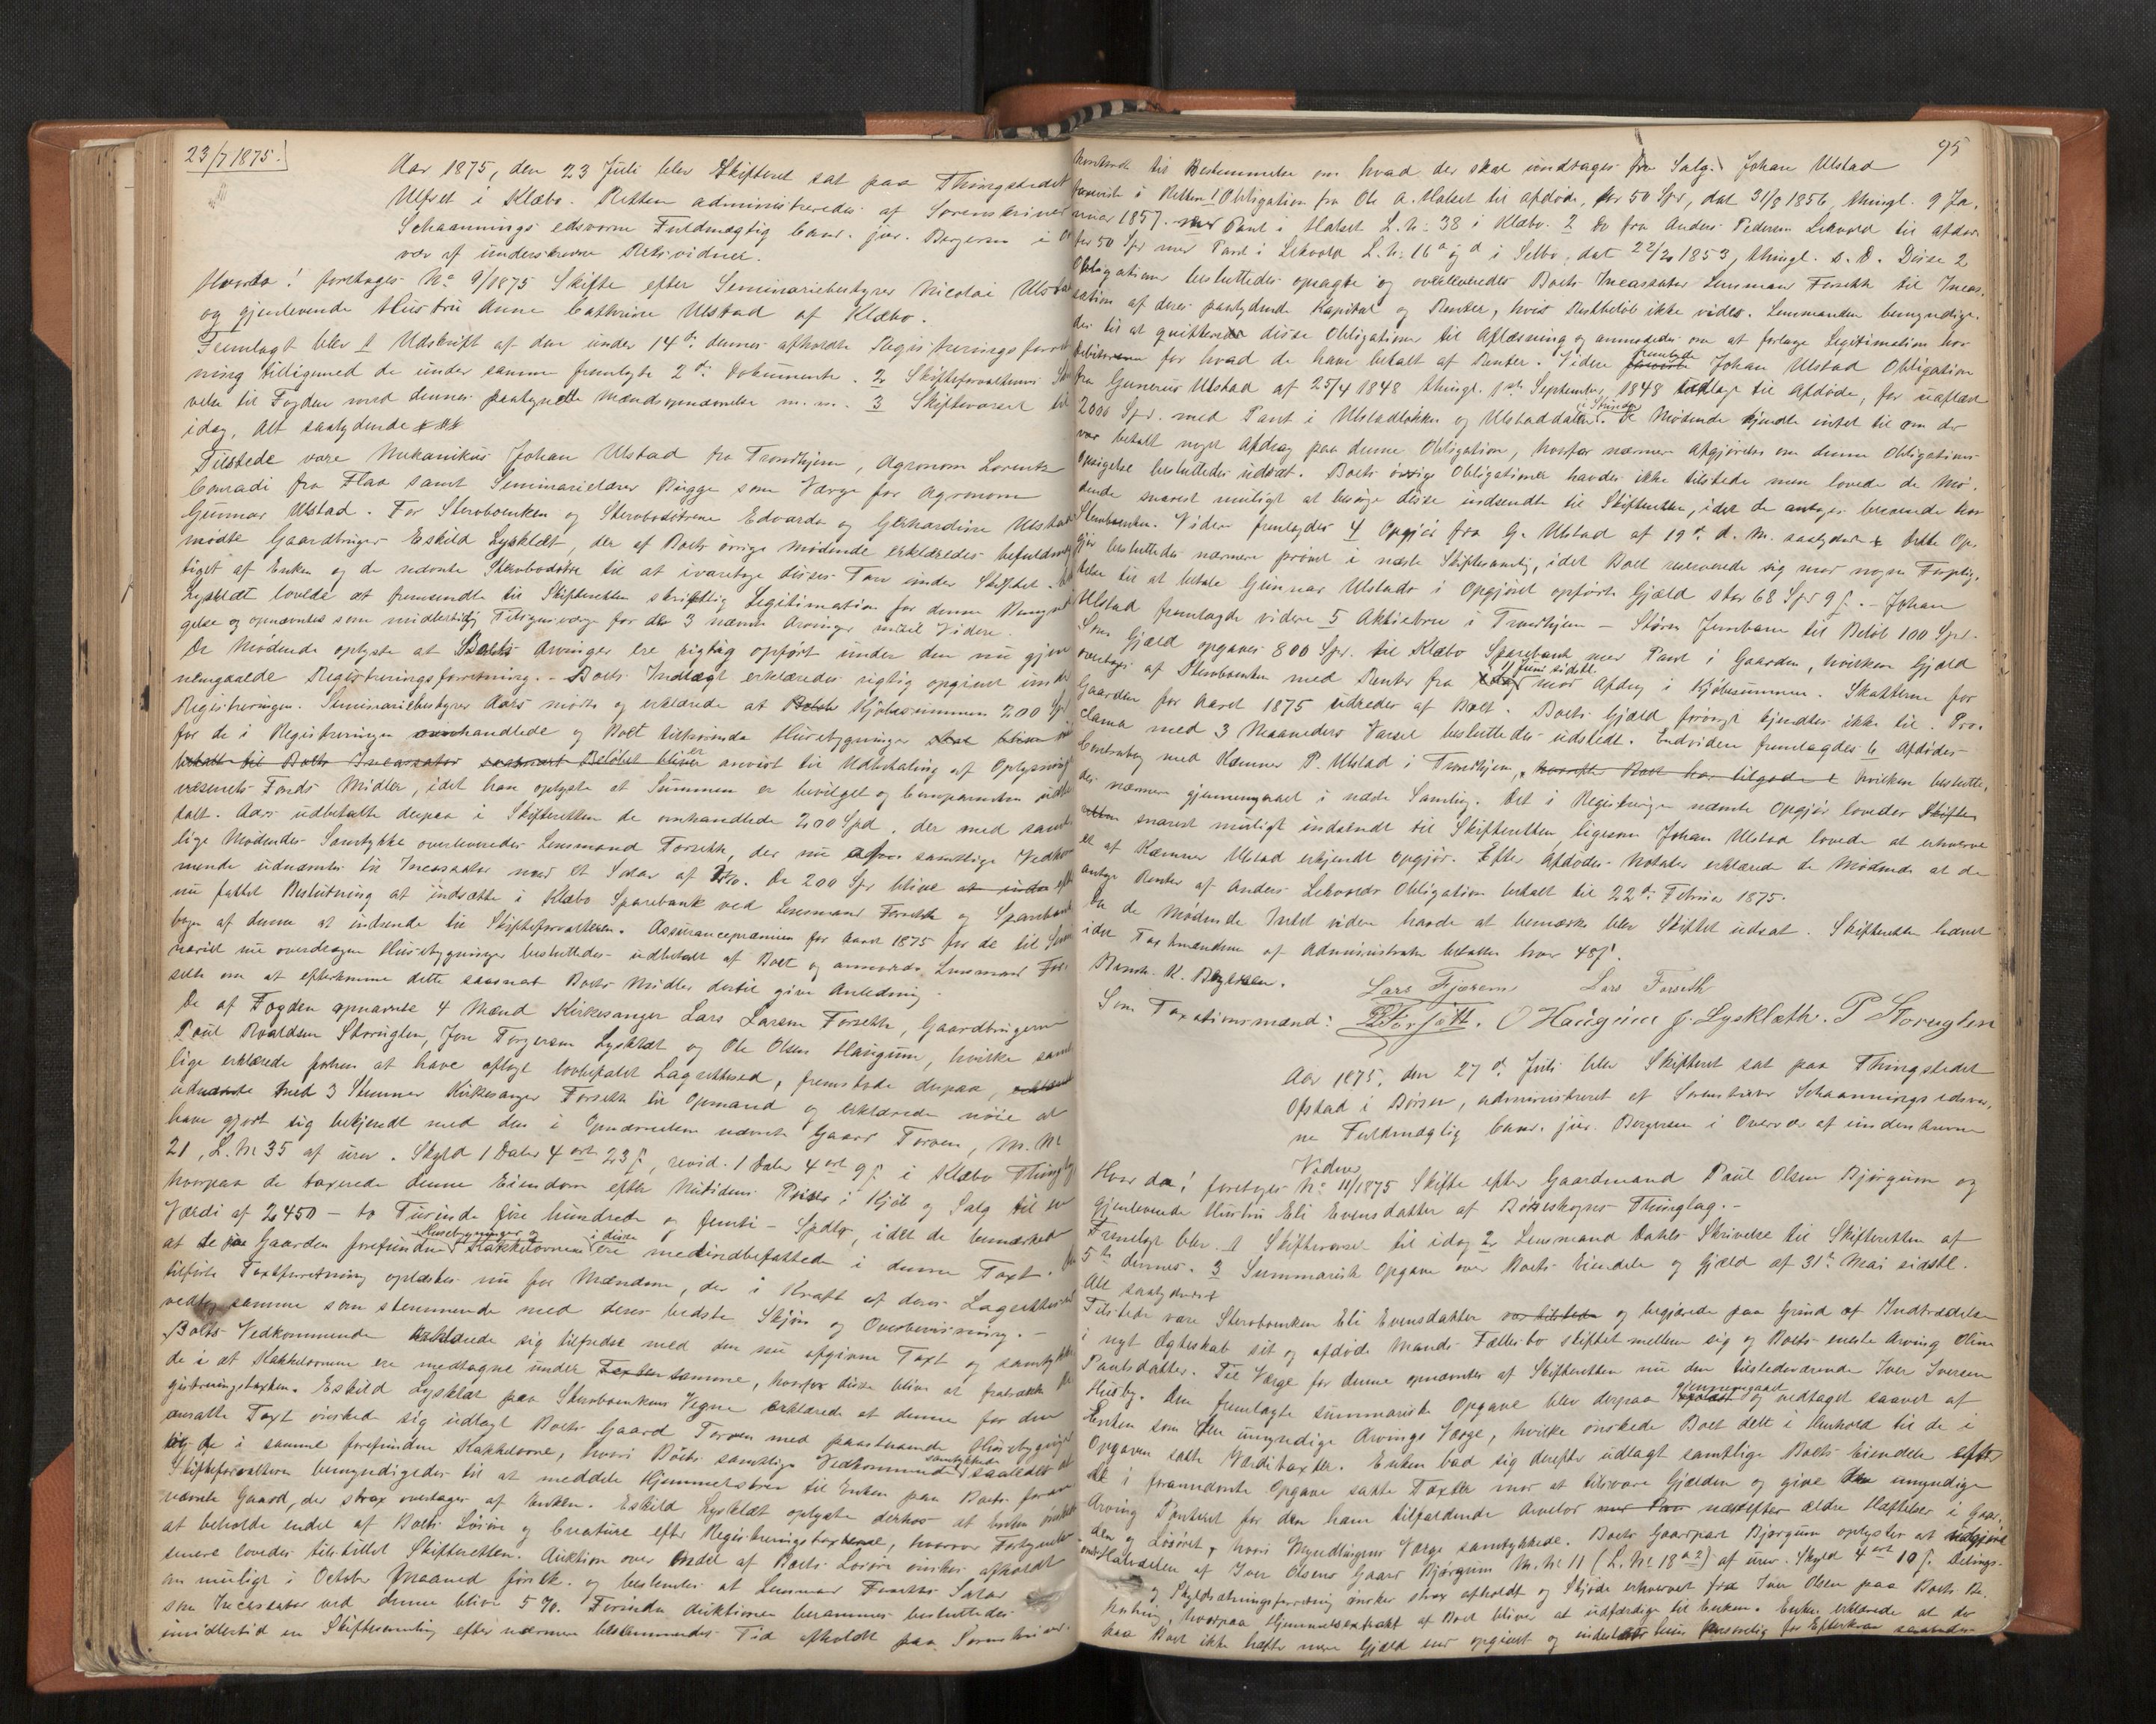 23/7 1875.
Aar 1875, den 23 Juli blev Skifteret sat paa Thingstedet
Ulset i Klæbo. Retten administreredes af Sorenskriver
Schaannings edsvorne Fuldmægtig Cand. jur. Bergersen i Over
vær af underskrevne Retsvidner.
Hvorda! foretages No 9/1875 Skifte efter Seminariebestyrer Nicolai Ulstad
og gjenlevende Hustru Anne Cathrine Ulstad af Klæbo.
Fremlagt blev 1 Udskrift af den under 14de dennes afholdte Registreringsforret
ning tilligemed de under samme fremlagte 2de Dokumenter. 2 Skifteforvalterens Skri
velse til Fogden med dennes paategnede Mændsopnævnelse m. m. 3 Skiftevarsel til
idag, Alt saalydende
Tilstede vare Mekanikus Johan Ulstad fra Trondhjem, Agronom Lorentz
Conradi fra Flaa samt Seminarielærer Bugge som Værge for Agronom
Gunnar Ulstad. For Stervboenken og Stervbodøtrene Edvarda og Gerhardine Ulstad
mødte Gaardbruger Eskild Lysklæt, der af Boets øvrige Mødende erklæredes befuldmæg
tiget af Enken og de nævnte Stervbodøtre til at ivaretage disses Tarv under Skiftet.
Lysklæt lovede at fremsendte til Skifteretten skriftlig Legitimation for denne Bemyndi
gelse og opnævntes som midlertidig Tilsynsværge for de 3 nævnte Arvinger indtil Videre.
De Mødende oplyste at Boets Arvinger ere rigtig opført under den nu gjen
nemgaaede Registreringsforretning. - Boets Indtægt erklæredes rigtig opgivet under
Registreringen. Seminariebestyrer Aars mødte og erklærede at Kjøbesummen 200 Spd
for de i Registreringen omhandlede og Boet tilhørende Husebygninger skal blive
betalt til Boets Incassator saasnart Beløbet bliver anvist til Udbetaling af Oplysnings
væsenets Fonds Midler, idet han oplyste at Summen er bevilget og
talt. Aars udbetalte derpaa i Skifteretten de omhandlede 200 Spd, der med samt
lige Mødendes Samtykke overleveredes Lensmand Forseth, der nu af samtlige Vedkom
mende udnævntes til Incassator mod et Salær af 2%. De 200 Spd blive efter
nu fattet Beslutning at indsætte i Klæbo Sparebank ved Lensmand Forseth og Sparebank
bogen af denne at indsende til Skifteforvalteren. Assurancepræmien for Aaret 1875 for de til Semi
nariet nu overdragne Husebygninger besluttedes udbetalt af Boet og anmodedes Lensmand For
seth om at efterkomme dette saasnart Boets Midler dertil give Anledning.
De af Fogden opnævnte 4 Mænd Kirkesanger Lars Larsen Forseth, Gaardbrugerne
Paul Roaldsen Storuglen, Jon Torgersen Lysklæt og Ole Olsen Haugum, hvilke samt
lige erklærede forhen at have aflagt lovbefalet Lagrettesed, fremstode derpaa,
udnævnte med 3 Stemmer Kirkesanger Forseth til Opmand og erklærede nøie at
have gjort sig bekjendt med den i Opnævnelsen nævnte Gaard Torven, M. No
21, L. No 35 af urev. Skyld 1 Daler 4 ort 23 s, revid. 1 Daler 4 ort 9 s. i Klæbo Thinglag
hvorpaa de taxerede denne Eiendom efter Nutidens Priser i Kjøb og Salg til en
Værdi af 2450 - to Tusinde fire hundrede og femti - Spdlr, idet de bemærkede
at de paa Gaarden forefundne Husebygninger og Kakkelovnene i disse ere medindbefattede i denne Taxt. Den
tilførte Taxtforretning oplæstes nu for Mændene, der i Kraft af deres Lagrettesed
vedtog samme som stemmende med deres bedste Skjøn og Overbevisning. -
Boets Vedkommende erklærede sig tilfredse med den nu afgivne Taxt og samtykke
de i at Kakkelovnene ere medtagne under samme, hvorfor disse blive at fratrække Re
gistreringstaxten. Eskild Lysklæt paa Stervboenkens Vegne erklærede at denne for den
ansatte Taxt ønskede sig udlagt Boets Gaard Torven med paastaaende Husebygninger
og de i samme forefundne Kakkelovne, hvori Boets samtlige Vedkommende samtykkede saaledes at
Skifteforvalteren bemyndigedes til at meddele Hjemmelsbrev til Enken paa Boets foran
nævnte Gaard, der strax overtages af Enken. Eskild Lysklæt oplyste derhos at Enken ønskede
at beholde endel af Boets Løsøre og Creature efter Registreringstaxterne, hvorover Fortegnelse
senere lovedes tilstillet Skifteretten. Auktion over Endel af Boets Løsøre ønskes afholdt
om muligt i October Maaned førstk. og bestemtes at Lensmand Forseths Salær
som Incassator ved denne bliver 5 %. Forinden Auktionen berammes besluttedes
imidlertid en Skiftesamling efter nærmere bestemmende Tid afholdt paa Sorenskriver-
95
kontoret til Bestemmelse om hvad der skal undtages fra Salg. Johan Ulstad
foreviste i Retten 1 Obligation fra Ole A. Halset til afdøde, for 50 Spd, dat 31/8 1856, thingl. 9 Ja-
nuar 1857. med Pant i Halset L. No 38 i Klæbo. 2 Do fra Anders Pedersen Lekvold til afdøde
for 50 Spd med Pant i Lekvold L. No 16 a og d i Selbo, dat 22/2 1853, thingl. s. D. Disse 2
Obligationer besluttedes opsagte og overleveredes Boets Incassator Lensmand Forseth til Incas-
sation af deres paalydende Kapital og Renter, hvis Restbeløb ikke vides. Lensmanden bemyndige-
des til at qvittere disse Obligationer til Aflæsning og anmodedes om at forlange Legitimation hos
Debitorerne for hvad de have betalt af Renter. Videre fremlagde Johan Ulstad Obligation
fra Gunerius Ulstad af 25/4 1848 thingl. 1ste September 1848 til Afdøde, for uaflæst
2000 Spd. med Pant i Ulstadløkken og Ulstaddalen i Strinden. De Mødende kjendte intet til om der
var betalt noget Afdrag paa denne Obligation, hvorfor nærmere Afgjørelse om denne Obligations
Opsigelse besluttedes udsat. Boets øvrige Obligationer havdes ikke tilstede men lovede de Mø-
dende snarest muligt at besørge disse indsendte til Skifteretten, idet de antages beroende hos
Stervboenken. Videre fremlagdes 4 Opgjør fra G. Ulstad af 19de d. M. saalydende. Dette Op-
gjør besluttedes nærmere prøvet i næste Skiftesamling, idet Boet reserverede sig mod nogen Forplig-
telse til at betale Gunnar Ulstads i Opgjøret opførte Gjæld stor 68 Spd 9 s. - Johan
Ulstad fremlagde videre 5 Aktiebreve i Trondhjem - Støren Jernbane til Beløb 100 Spd.
Som Gjæld opgaves 800 Spd. til Klæbo Sparebank mod Pant i Gaarden, hvilken Gjæld
overtages af Stervboenken med Renter fra 11 Juni sidstl. mod Afdrag i Kjøbesummen. Skatterne for
Gaarden for Aaret 1875 udredes af Boet. Boets Gjæld forøvrigt kjendtes ikke til. Pro-
clama med 3 Maaneders Varsel besluttedes udstedt. Endvidere fremlagdes 6 Afdødes
Contrabog med Kæmner P. Ulstad i Trondhjem, hvilken beslutte-
des nærmere gjennemgaaet i næste Samling. Det i Registreringen nævnte Opgjør lovedes
snarest muligt indsendt til Skifteretten, ligesom Johan Ulstad lovede at erhverve
et af Kæmner Ulstad erkjendt Opgjør. Efter Afdødes Notater erklærede de Mødende at de
antage Renter af Anders Lekvolds Obligation betalt til 22de Februar 1875.
Da de Mødende Intet videre havde at bemærke blev Skiftet udsat. Skifteretten hævet
idet Taxtmændene af Administrator betaltes hver 48 s.
Bernh. K. Bergersen.
Lars Fjærem
Lars Forseth
Som Taxationsmænd:
O Haugum J. Lysklæth. P Storuglen
Aar 1875, den 27de Juli blev Skifteret sat paa Thingstedet
Opstad i Børsen, administreret af Sorenskriver Schaannings edsvor-
ne Fuldmægtig Cand. jur. Bergersen i Overvær af underskrevne
Vidner.
Hvor da! foretages No 11/1875 Skifte efter Gaardmand Paul Olsen Bjørgum og
gjenlevende Hustru Eli Evensdatter af Børseskognes Thinglag. -
Fremlagt blev 1 Skiftevarsel til idag 2 Lensmand Dahls Skrivelse til Skifteretten af
5te dennes. 3 Summarisk Opgave over Boets Eiendele og Gjæld af 31te Mai sidstl.
Alt saalydende
Tilstede vare Stervboenken Eli Evensdatter og begjærede paa Grund af Indtrædelse
i nyt Ægteskab sit og afdøde Mands Fællesbo skiftet mellem sig og Boets eneste Arving Oline
Paulsdatter. Til Værge for denne opnævntes af Skifteretten nu den tilstedeværende Iver Iversen
Husby. Den fremlagte summariske Opgave blev derpaa gjennemgaaet og vedtaget saavel af
Enken som den umyndige Arvings Værge, hvilke ønskede Boet delt i Henhold til de i
Opgaven satte Værditaxter. Enken bad sig derefter udlagt samtlige Boets Eiendele efter
de i forannævnte Opgave satte Taxter mod at tilsvare Gjælden og give den umyndige
Arving Panteret for den ham tilfaldende Arvelod næstefter ældre Hæftelser i Gaar-
den og Løsøret, hvori Myndlingens Værge samtykkede. Boets Gaardpart Bjørgum oplystes at udgjøre
Halvdelen af Iver Olsens Gaard Bjørgum M. No 11 (L. No 18 a 2) af urev. Skyld 4 ort 10 s. Delings-
og Skyldsætningsforretning ønskes strax afholdt og Skjøde erhvervet fra Iver Olsen paa Boets Be
kostning, hvorpaa Hjemmelsextrakt af Boet bliver at udfærdige til Enken. Enken erklærede at der
paa Boet ikke hefter mere Gjæld end opgivet og indestaar hun personlig for Efterkrav